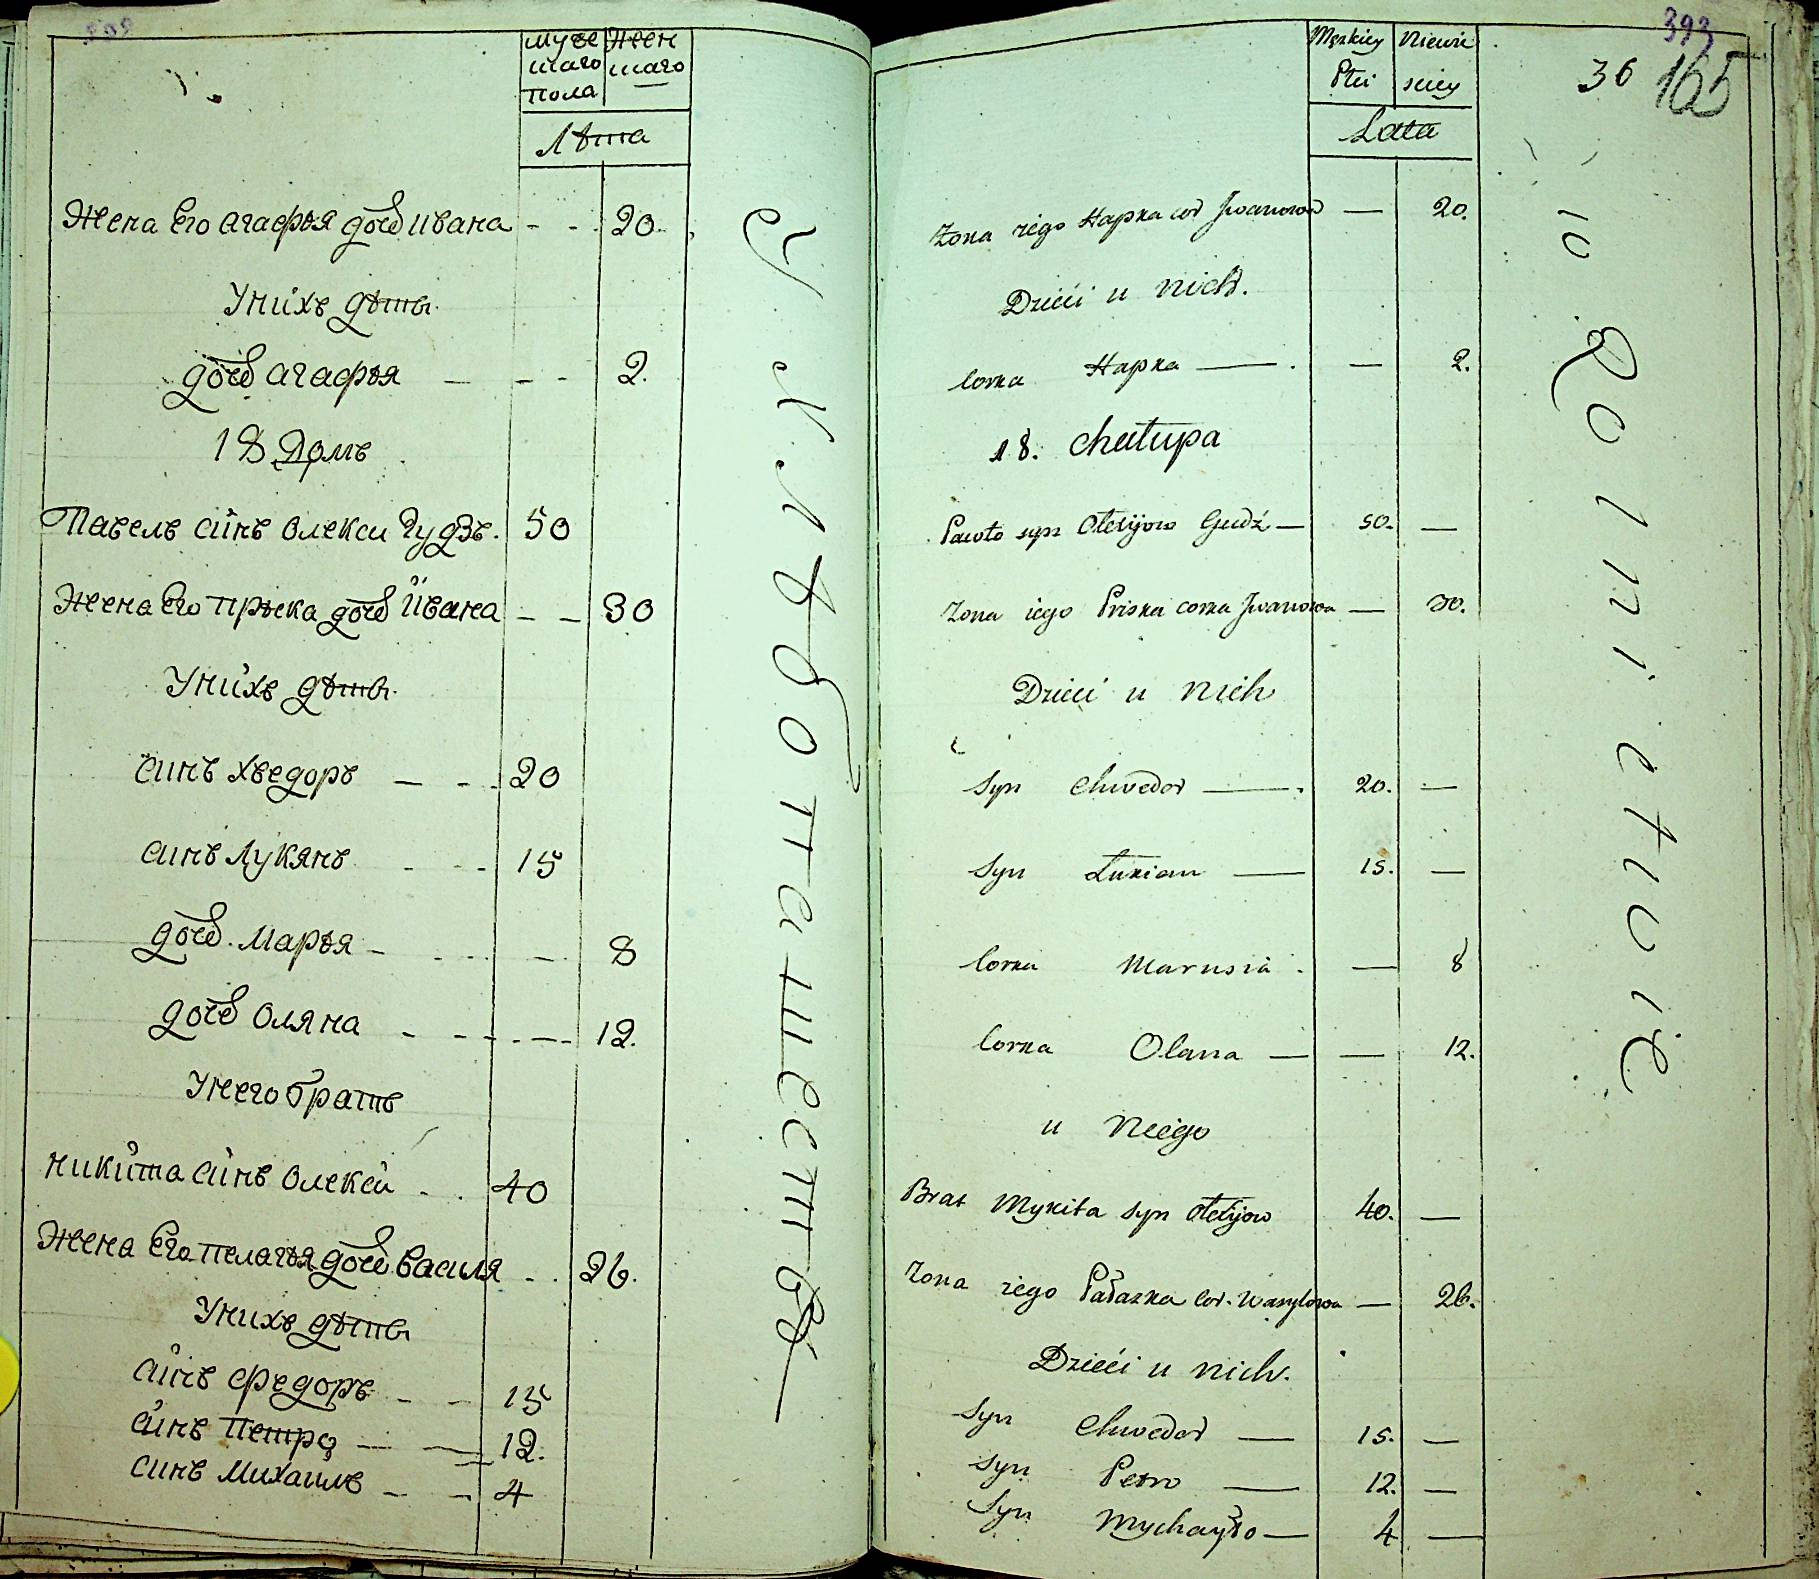 Муже Жен
шаго шаго
пола
Лѣта
Жена Его агафѣя дочь ивана - - 20.
Унихъ дѣты.
дочь агафѣя - - - 2.
18 Домъ
Павелъ синъ олекси Гудзь. 50
Жена Его прѣска дочь ивана - - 30
Унихъ дѣты.
синъ хведоръ - - 20
синъ Лукянъ - - 15
дочь. Марѣя - - 8
дочь оляна - - - - 12.
Унего братъ
никита синъ олекси . . 40
Жена Его пелагѣя дочь василя . . 26.
Унихъ дѣты
синъ федоръ - - 15
синъ петро - - 12.
синъ михаилъ - - 4
У хлѣбопашествѣ
393
36 165
Męzkiey Niewie
Płci sciey
Lata
Zona iego Hapka cor Jwanowa — 20.
Dzieci u nich.
Corka Hapka — . — 2.
18. chałupa
Pawło syn Olexijow Gudź — 50. —
Zona iego Priska corka Jwanowa — 30.
Dzieci u nich
Syn Chwedor — . 20. —
Syn Łukian — 15. —
Corka Marusia . — 8
Corka Olana — — 12.
u Niego
Brat Mykita syn Olexijow 40. —
Zona iego Pałazka Cor. Wasylowa — 26.
Dzieci u nich.
Syn Chwedor — 15. —
Syn Petro — 12. —
Syn Mychayło — 4 —
w Rolnictwie